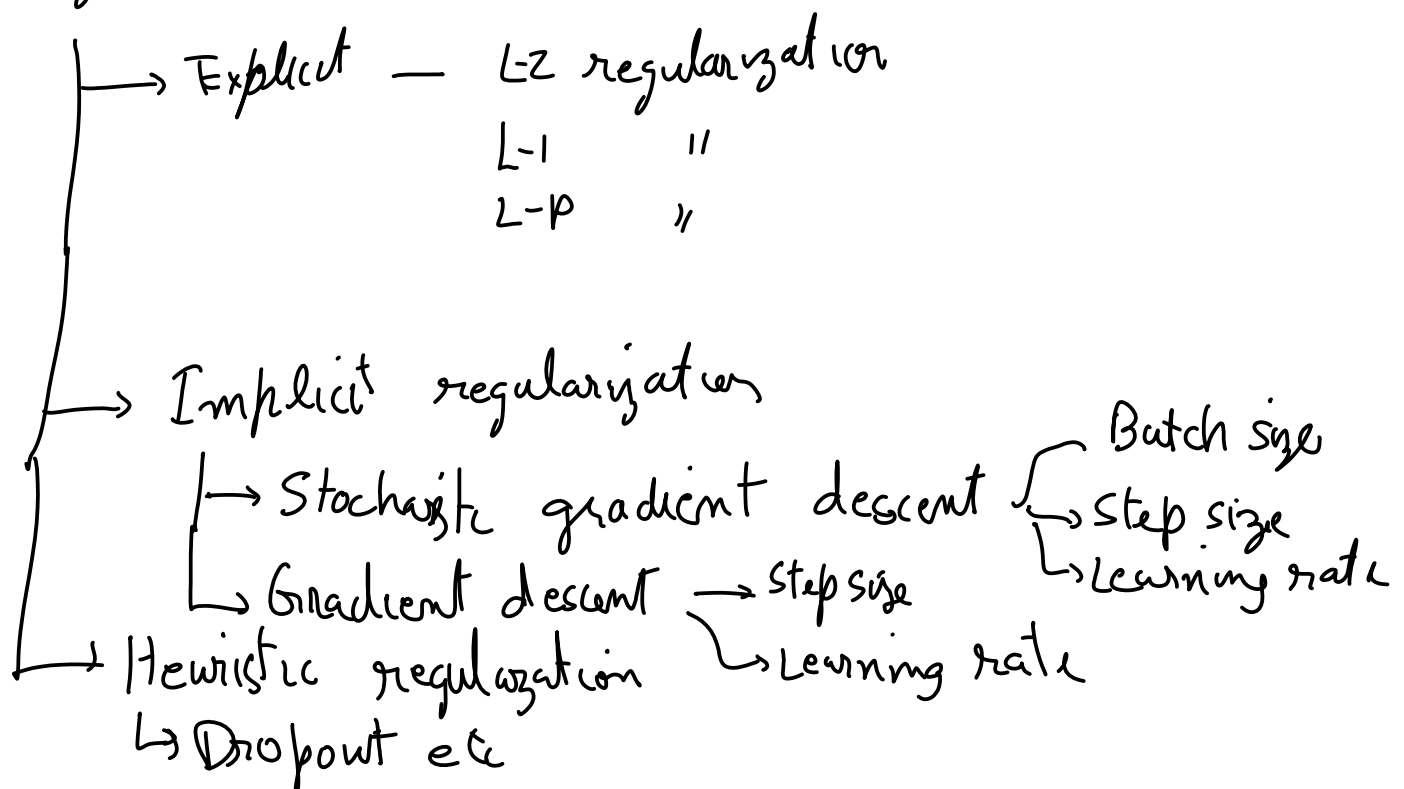 Explicit — L-2 regularization
L-1 "
L-P "
Implicit regularization
Batch size
Stochastic gradient descent
Step size
Learning rate
Gradient descent → Step size
Learning rate
Heuristic regularization
↳ Dropout etc